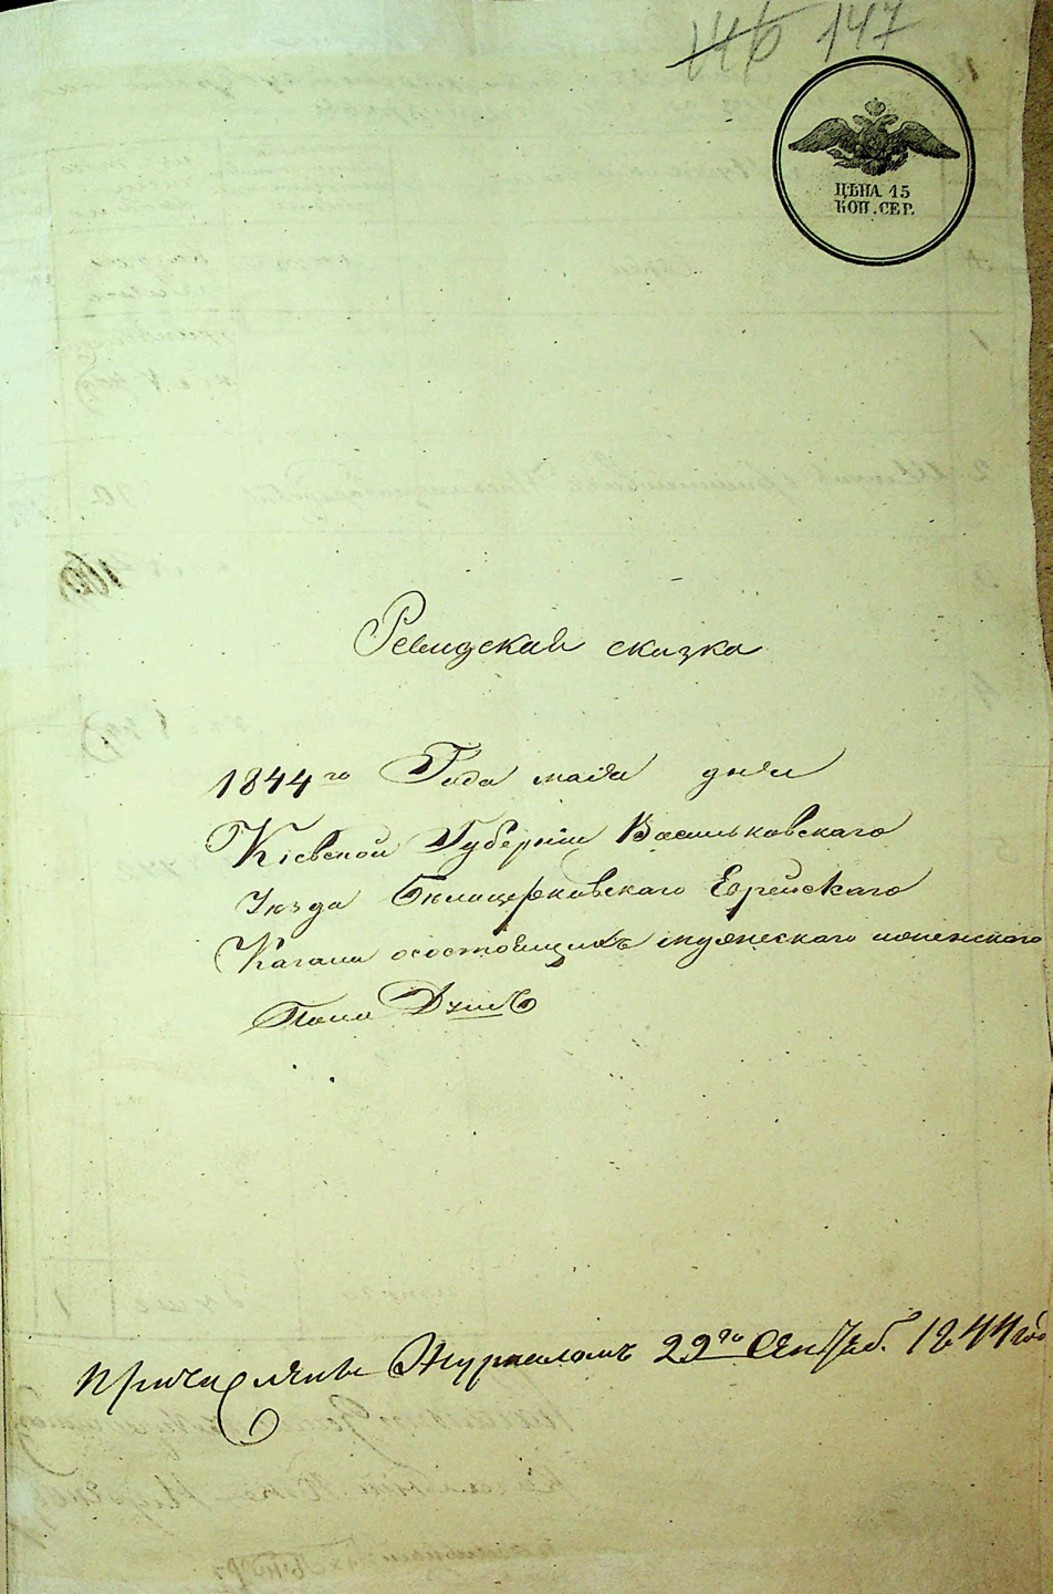 146 147
ЦѢНА 15
КОП. СЕР.
Ревидская сказка
1844го Года маія дня
Кіевской Губерніи Васильковскаго
Уѣзда Бѣлоцерковскаго Еврейскаго
Кагала осостоящихъ мужескаго иженскаго
Пола Душъ
Причислены Журналомъ 29го Сентяб. 1844 год